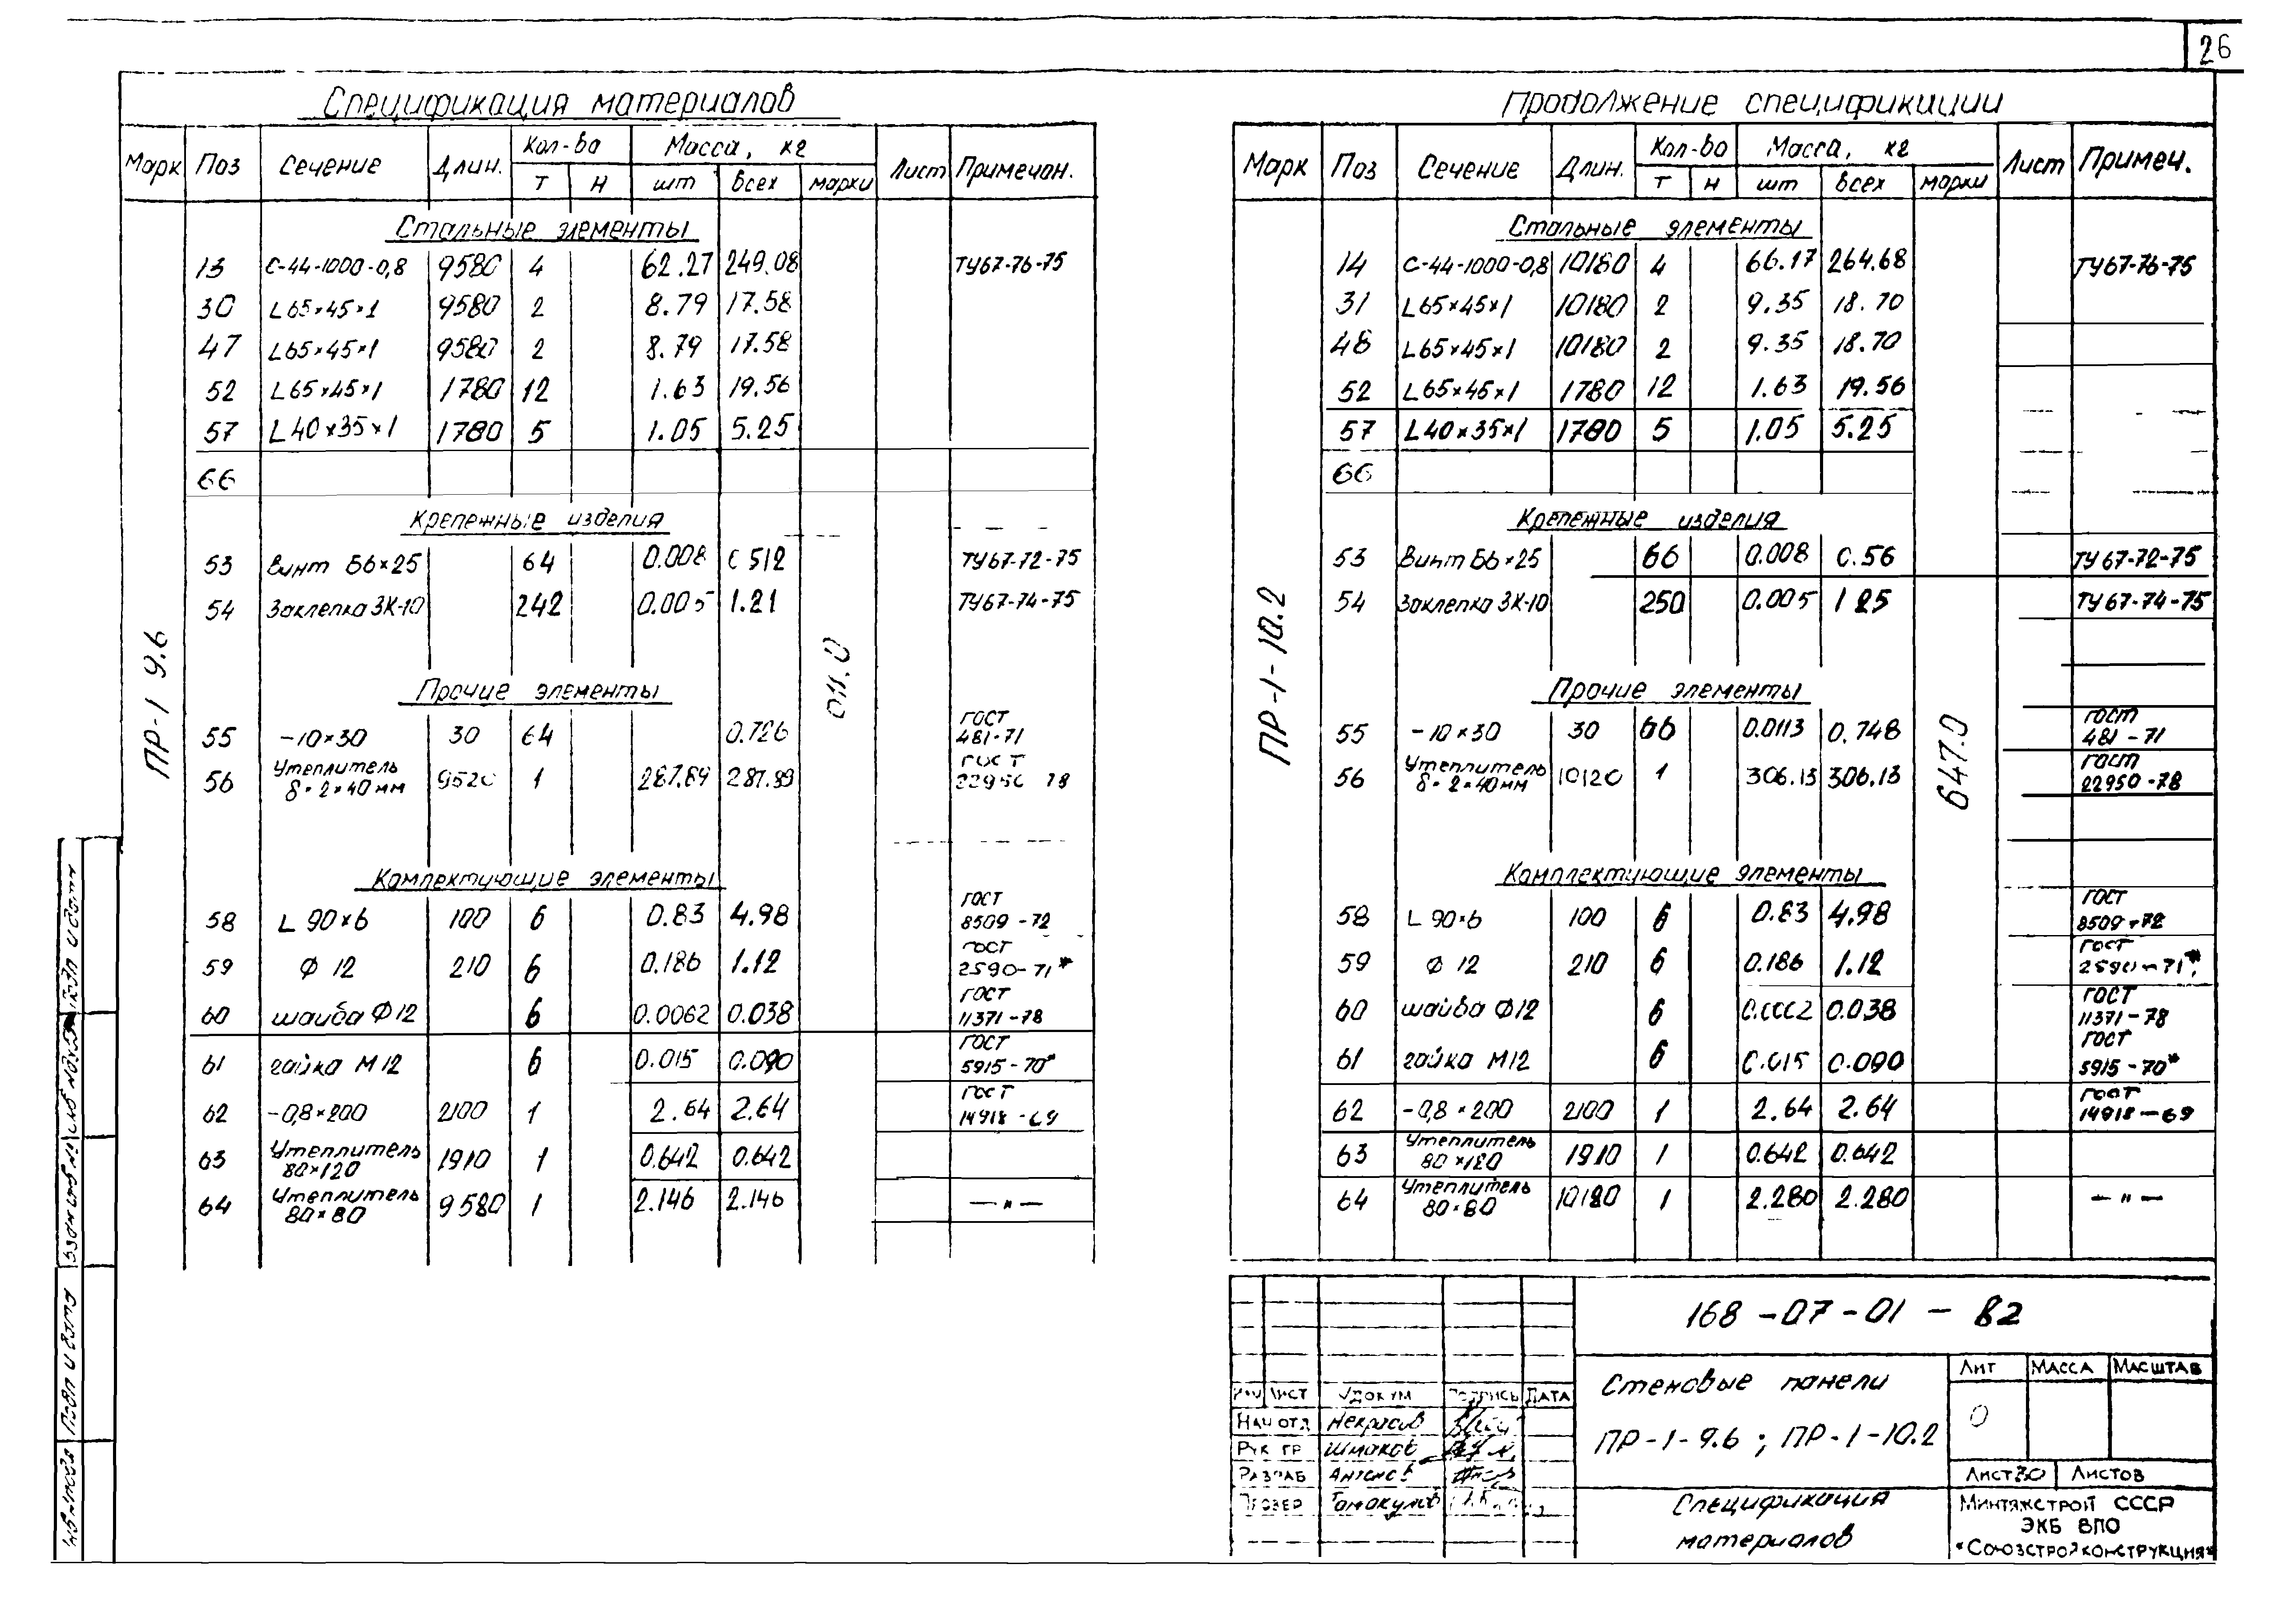 26
Спецификация материалов
Марк Поз Сечение Длин. Кол-во Масса, кг Лист Примечан.
т н шт всех марки
ПР-1 9.6
Стальные элементы
13 С-44-1000-0,8 9580 4 62.27 249.08 ТУ67-76-75
30 L65×45×1 9580 2 8.79 17.58
47 L65×45×1 9580 2 8.79 17.58
52 L65×45×1 1780 12 1.63 19.56
57 L40×35×1 1780 5 1.05 5.25
66
Крепежные изделия
53 Винт Б6×25 64 0.008 0 512 ТУ67-72-75
54 Заклепка ЗК-10 242 0.005 1.21 ТУ67-74-75
Прочие элементы
55 -10×30 30 64 0.726 ГОСТ 481-71
56 Утеплитель δ=2×40мм 9520 1 ГОСТ 22950-78
Комплектующие элементы
58 L 90×6 100 6 0.83 4.98 ГОСТ 8509-72
59 Ф 12 210 6 0.186 1.12 ГОСТ 2590-71*
60 шайба Ф12 6 0.0062 0.038 ГОСТ 11371-78
61 гайка М12 6 0.015 0.090 ГОСТ 5915-70*
62 -0,8×200 2100 1 2.64 2.64 ГОСТ 14918-69
63 Утеплитель 80×120 1910 1 0.642 0.642
64 Утеплитель 80×80 9580 1 2.146 2.146 —"—
Продолжение спецификации
Марк Поз Сечение Длин. Кол-во Масса, кг Лист Примеч.
т н шт всех марки
ПР-1-10.2
647.0
Стальные элементы
14 С-44-1000-0,8 10180 4 66.17 264.68 ТУ67-76-75
31 L65×45×1 10180 2 9.35 18.70
48 L65×45×1 10180 2 9.35 18.70
52 L65×45×1 1780 12 1.63 19.56
57 L40×35×1 1780 5 1.05 5.25
66
Крепежные изделия
53 Винт Б6×25 66 0.008 0.56 ТУ67-72-75
54 Заклепка ЗК-10 250 0.005 1 25 ТУ67-74-75
Прочие элементы
55 -10×30 30 66 0.0113 0.748 ГОСТ 481-71
56 Утеплитель δ=2×40мм 10120 1 306.13 306.13 ГОСТ 22950-78
Комплектующие элементы
58 L 90×6 100 6 0.83 4.98 ГОСТ 8509-72
59 Ф 12 210 6 0.186 1.12 ГОСТ 2590-71*
60 шайба Ф12 6 0.0062 0.038 ГОСТ 11371-78
61 гайка М12 6 0.015 0.090 ГОСТ 5915-70*
62 -0,8×200 2100 1 2.64 2.64 ГОСТ 14918-69
63 Утеплитель 80×120 1910 1 0.642 0.642
64 Утеплитель 80×80 10180 1 2.280 2.280 —"—
168-07-01-82
Стеновые панели
ПР-1-9.6; ПР-1-10.2
Лит Масса Масштаб
0
Лист 30 Листов
Изм Лист №докум Подпись Дата
Нач отд Некрасов
Рук гр Шмаков
Разраб Антонов
Провер
Спецификация
материалов
Минтяжстрой СССР
ЭКБ ВПО
"Союзстройконструкция"
Инв№подл Подп и дата Взам инв № Инв№дубл Подп и дата